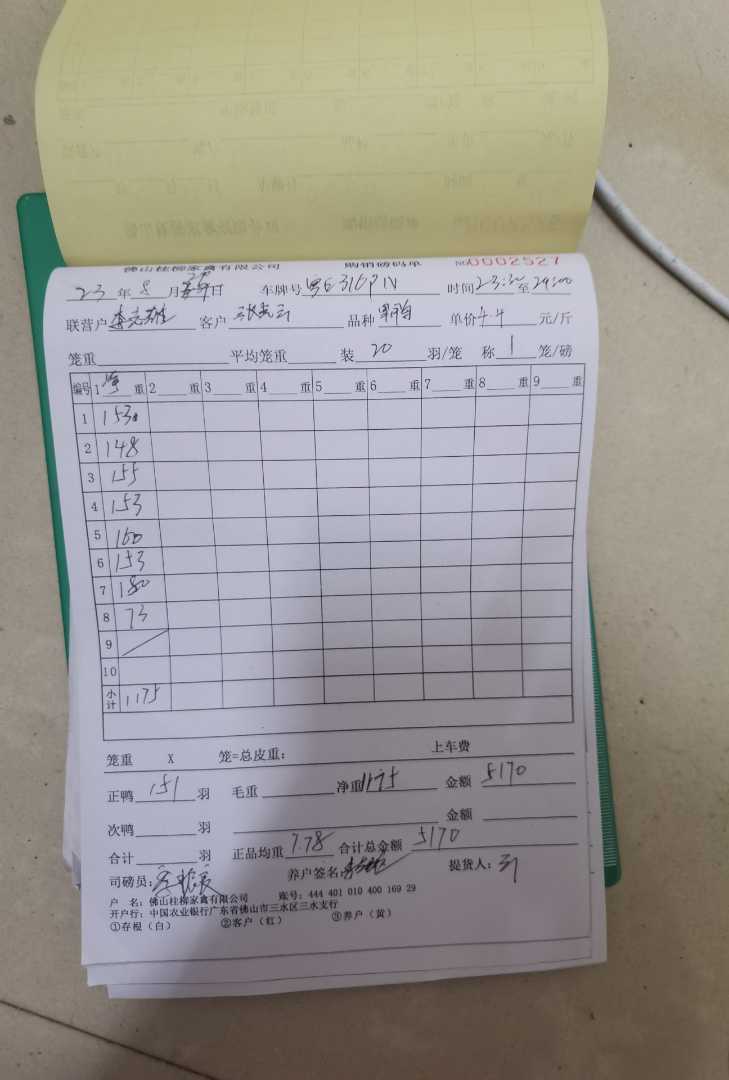 佛山桂柳家禽有限公司 购销磅码单 №0002527
23年8月29日 车牌号 时间23:30至24:00
联营户李志雄 客户张志云 品种 单价4.4元/斤
笼重 平均笼重 装20羽/笼 称1笼/磅
编号 1 重 2 重 3 重 4 重 5 重 6 重 7 重 8 重 9 重
1 153
2 148
3 155
4 153
5 160
6 153
7 180
8 73
9
10
小计 1175
笼重 X 笼=总皮重: 上车费
正鸭151羽 毛重 净重1175 金额5170
次鸭 羽 金额
合计 羽 正品均重7.78 合计总金额5170
司磅员: 养户签名: 提货人:
户 名: 佛山桂柳家禽有限公司 账号: 444 401 010 400 169 29
开户行: 中国农业银行广东省佛山市三水区三水支行
①存根(白) ②客户(红) ③养户(黄)